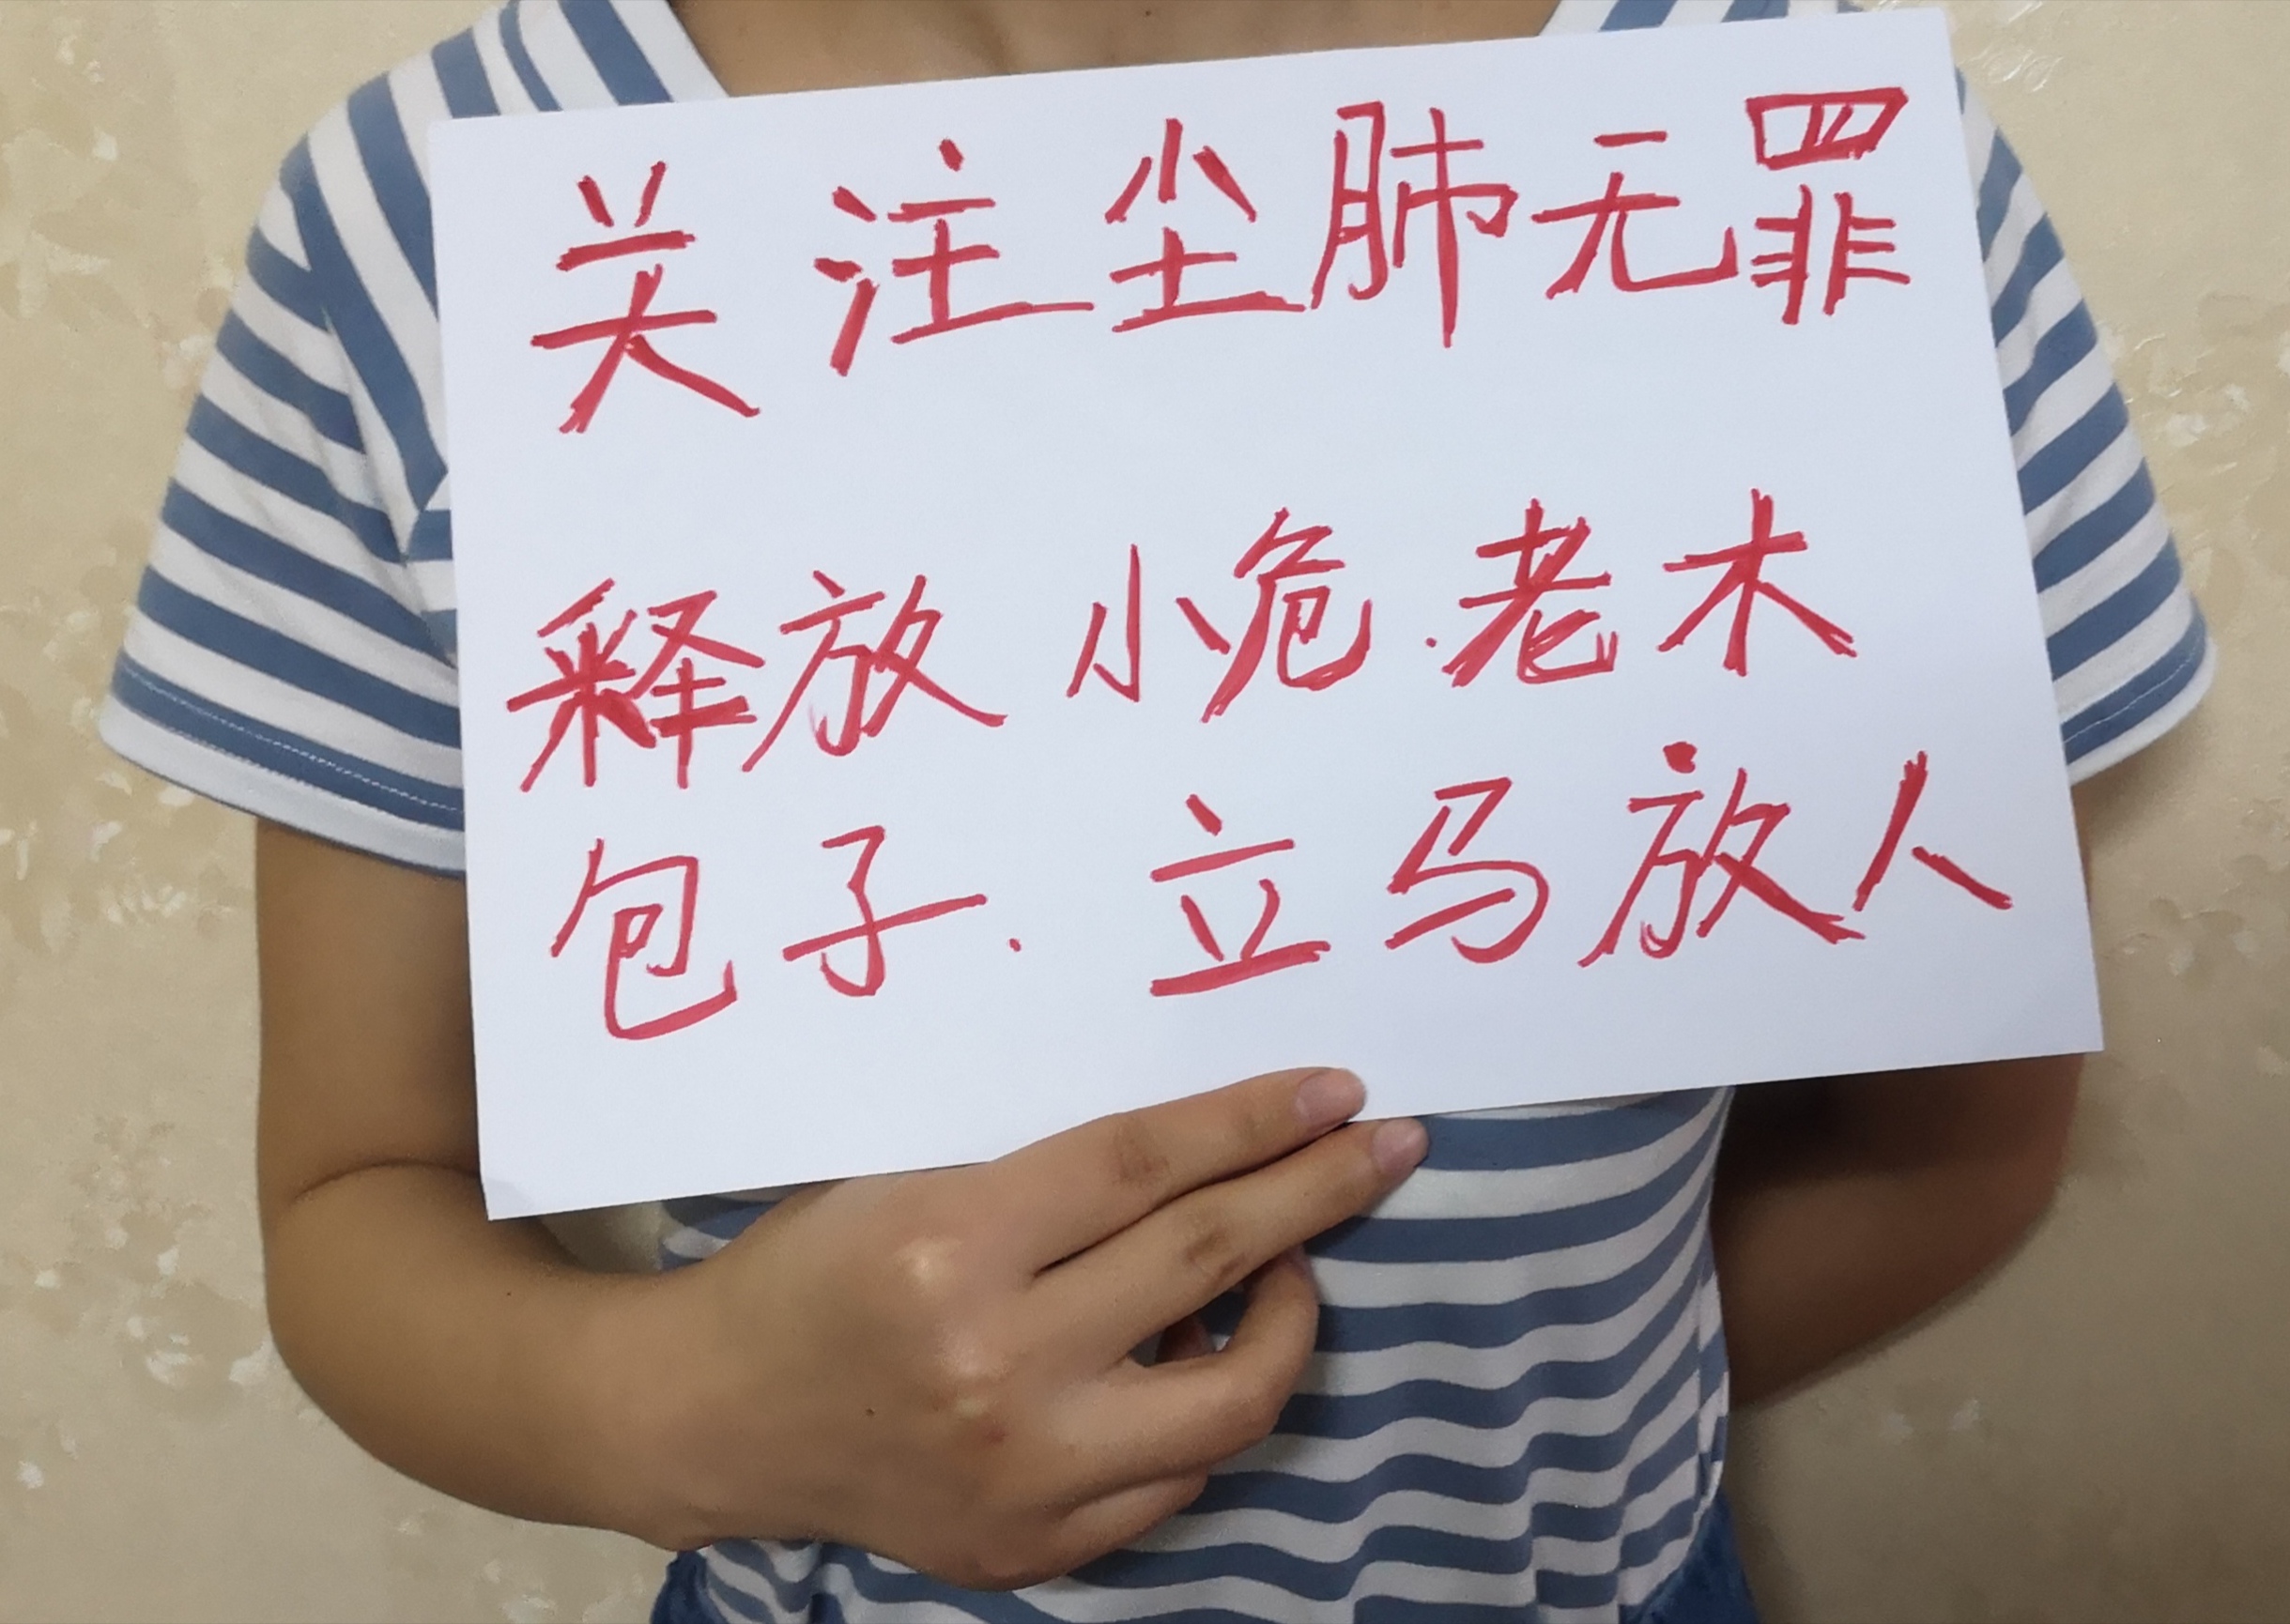 关注尘肺无罪
释放小危.老木
包子.立马放人